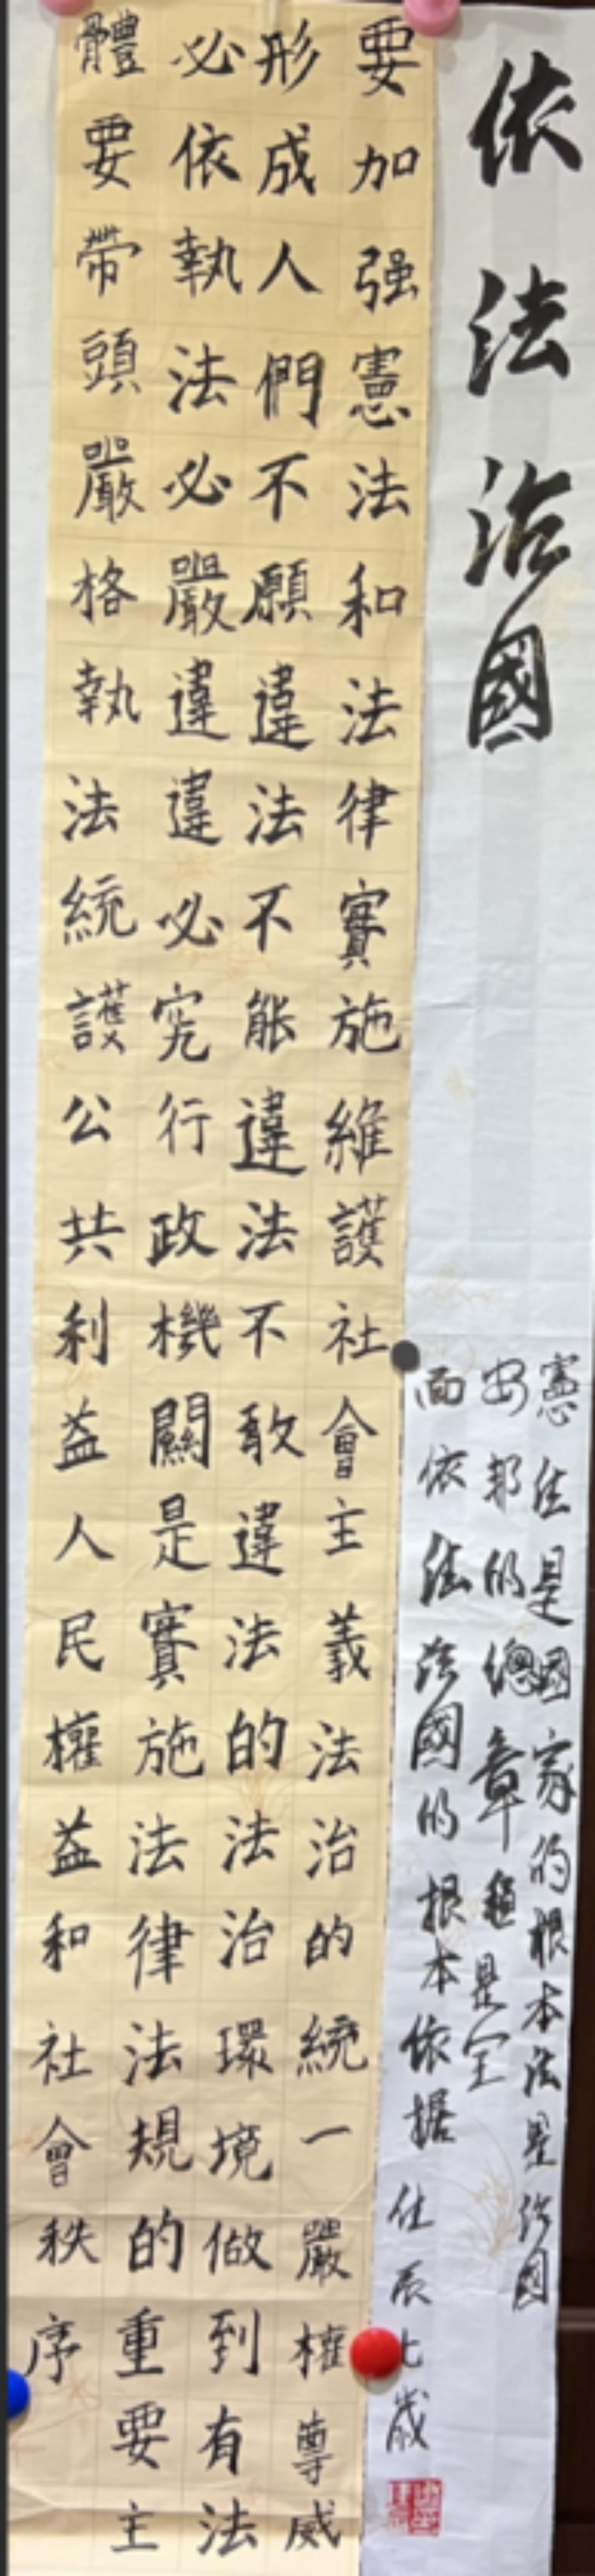 依法治國
憲法是國家的根本法是治國
安邦的總章程是全
面依法治國的根本依据
七歲
要加强憲法和法律實施維護社會主義法治的統一嚴權尊威
形成人們不願違法不能違法不敢違法的法治環境做到有法
必依執法必嚴違違必究行政機關是實施法律法規的重要主
體要帶頭嚴格執法統護公共利益人民權益和社會秩序